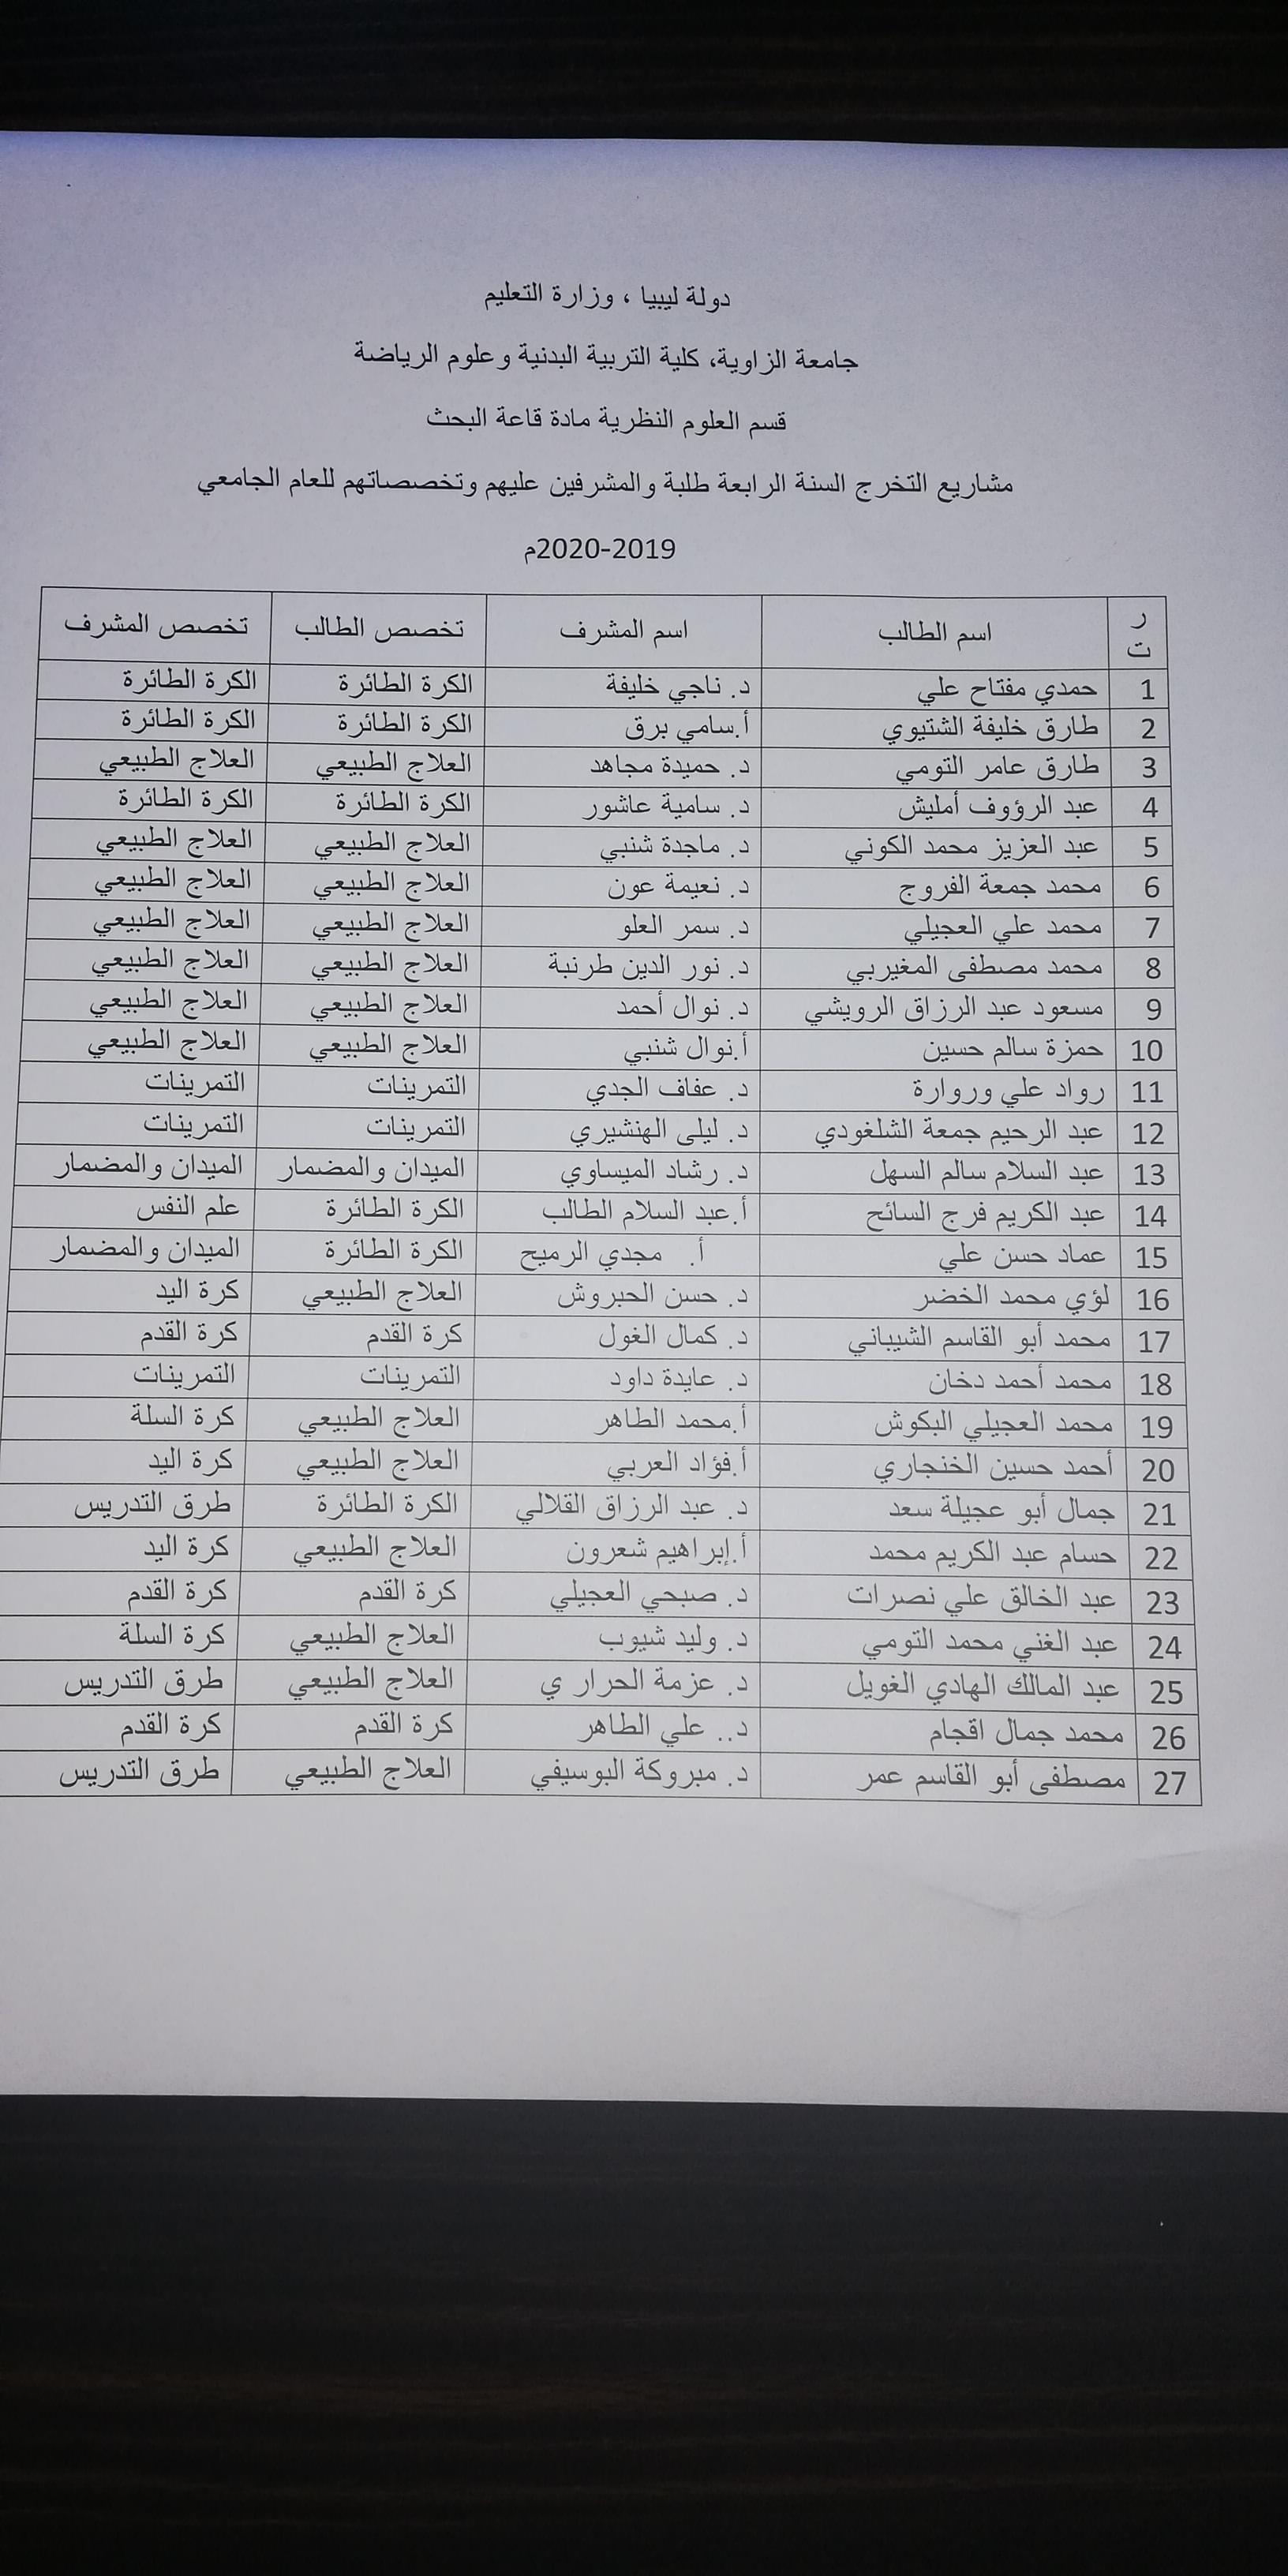 دولة ليبيا ، وزارة التعليم
جامعة الزاوية، كلية التربية البدنية وعلوم الرياضة
قسم العلوم النظرية مادة قاعة البحث
مشاريع التخرج السنة الرابعة طلبة والمشرفين عليهم وتخصصاتهم للعام الجامعي
2019-2020م
ر ت اسم الطالب اسم المشرف تخصص الطالب تخصص المشرف
1 حمدي مفتاح علي د. ناجي خليفة الكرة الطائرة الكرة الطائرة
2 طارق خليفة الشتيوي أ.سامي برق الكرة الطائرة الكرة الطائرة
3 طارق عامر التومي د. حميدة مجاهد العلاج الطبيعي العلاج الطبيعي
4 عبد الرؤوف أمليش د. سامية عاشور الكرة الطائرة الكرة الطائرة
5 عبد العزيز محمد الكوني د. ماجدة شنبي العلاج الطبيعي العلاج الطبيعي
6 محمد جمعة الفروج د. نعيمة عون العلاج الطبيعي العلاج الطبيعي
7 محمد علي العجيلي د. سمر العلو العلاج الطبيعي العلاج الطبيعي
8 محمد مصطفى المغيربي د. نور الدين طرنبة العلاج الطبيعي العلاج الطبيعي
9 مسعود عبد الرزاق الرويشي د. نوال أحمد العلاج الطبيعي العلاج الطبيعي
10 حمزة سالم حسين أ.نوال شنبي العلاج الطبيعي العلاج الطبيعي
11 رواد علي وروارة د. عفاف الجدي التمرينات التمرينات
12 عبد الرحيم جمعة الشلغودي د. ليلى الهنشيري التمرينات التمرينات
13 عبد السلام سالم السهل د. رشاد الميساوي الميدان والمضمار الميدان والمضمار
14 عبد الكريم فرج السائح أ.عبد السلام الطالب الكرة الطائرة علم النفس
15 عماد حسن علي أ. مجدي الرميح الكرة الطائرة الميدان والمضمار
16 لؤي محمد الخضر د. حسن الحبروش العلاج الطبيعي كرة اليد
17 محمد أبو القاسم الشيباني د. كمال الغول كرة القدم كرة القدم
18 محمد أحمد دخان د. عايدة داود التمرينات التمرينات
19 محمد العجيلي البكوش أ.محمد الطاهر العلاج الطبيعي كرة السلة
20 أحمد حسين الخنجاري أ.فؤاد العربي العلاج الطبيعي كرة اليد
21 جمال أبو عجيلة سعد د. عبد الرزاق القلالي الكرة الطائرة طرق التدريس
22 حسام عبد الكريم محمد أ.إبراهيم شعرون العلاج الطبيعي كرة اليد
23 عبد الخالق علي نصرات د. صبحي العجيلي كرة القدم كرة القدم
24 عبد الغني محمد التومي د. وليد شيوب العلاج الطبيعي كرة السلة
25 عبد المالك الهادي الغويل د. عزمة الحرار ي العلاج الطبيعي طرق التدريس
26 محمد جمال اقجام د.. علي الطاهر كرة القدم كرة القدم
27 مصطفى أبو القاسم عمر د. مبروكة البوسيفي العلاج الطبيعي طرق التدريس